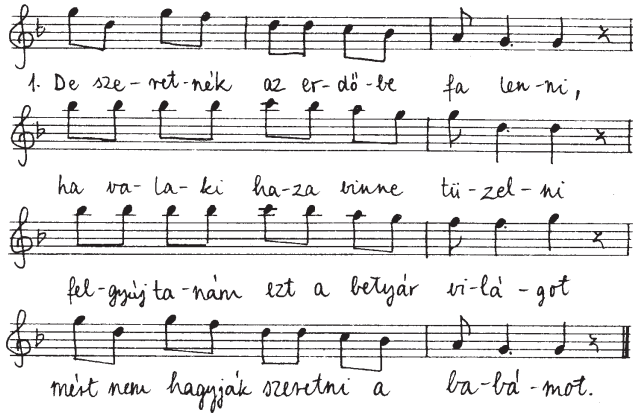 1. De sze-ret-nék az er-dő-be fa len-ni,
ha va-la-ki ha-za vinne tü-zel-ni
fel-gyúj ta-nám ezt a betyár vi-lá-got
mért nem hagyják szeretni a ba-bá-mot.